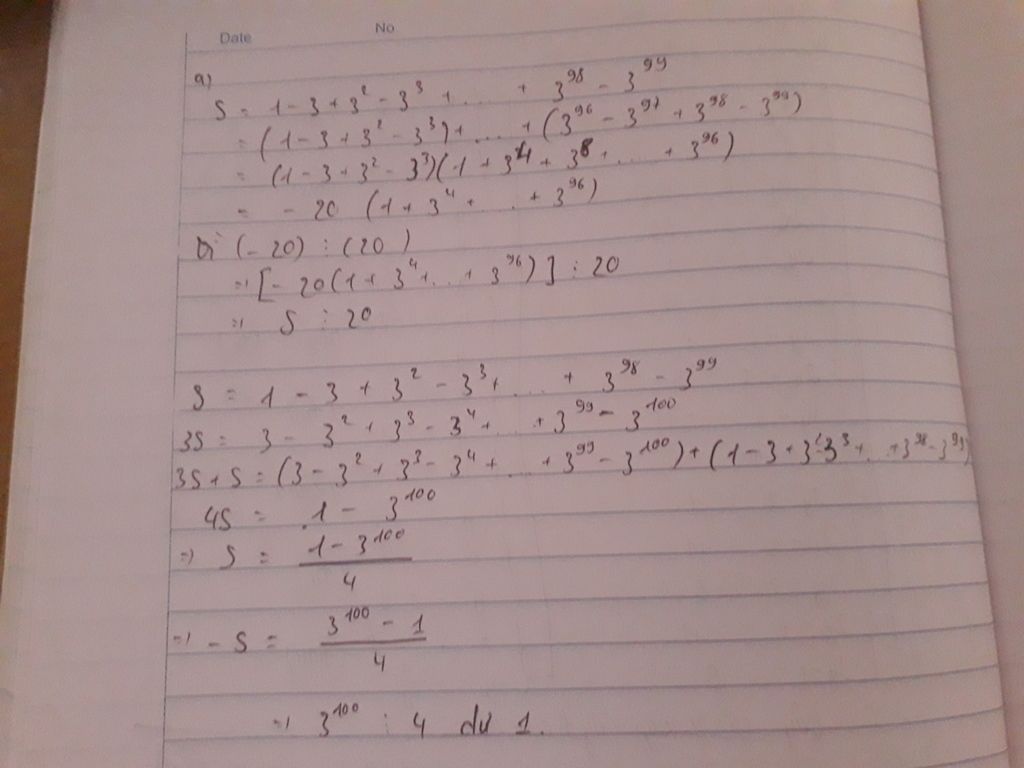 Date No
a)
S = 1 - 3 + 3² - 3³ + ... + 3⁹⁸ - 3⁹⁹
= (1 - 3 + 3² - 3³) + ... + (3⁹⁶ - 3⁹⁷ + 3⁹⁸ - 3⁹⁹)
= (1 - 3 + 3² - 3³)(1 + 3⁴ + 3⁸ + ... + 3⁹⁶)
= - 20 (1 + 3⁴ + ... + 3⁹⁶)
Vì (- 20) ⋮ (20)
=> [- 20(1 + 3⁴ + ... + 3⁹⁶)] ⋮ 20
=> S ⋮ 20
S = 1 - 3 + 3² - 3³ + ... + 3⁹⁸ - 3⁹⁹
3S = 3 - 3² + 3³ - 3⁴ + ... + 3⁹⁹ - 3¹⁰⁰
3S + S = (3 - 3² + 3³ - 3⁴ + ... + 3⁹⁹ - 3¹⁰⁰) + (1 - 3 + 3² - 3³ + ... + 3⁹⁸ - 3⁹⁹)
4S = 1 - 3¹⁰⁰
=> S = (1 - 3¹⁰⁰)/4
=> - S = (3¹⁰⁰ - 1)/4
=> 3¹⁰⁰ : 4 dư 1.